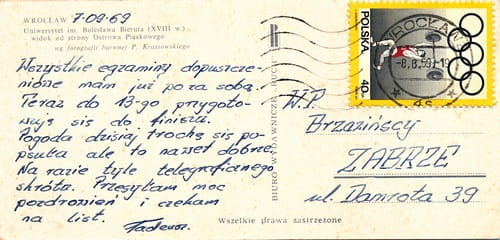 WROCŁAW 7.09.69
Uniwersytet im. Bolesława Bieruta (XVIII w.)
widok od strony Ostrowa Piaskowego
wg fotografii barwnej P. Krassowskiego
Wszystkie egzaminy dopuszcze-
niowe mam już poza sobą.
Teraz do 13-go przygoto-
wuję się do finiszu.
Pogoda dzisiaj trochę się po-
psuła ale to nawet dobrze.
Na razie tyle telegraficznego
skrótu. Przesyłam moc
pozdrowień i czekam
na list. Tadeusz.
BIURO WYDAWNICZE „RUCH"
POLSKA 40
WROCŁAW
-8.8.69-19
W.P.
Brzazińscy
ZABRZE
ul. Damrota 39
Wszelkie prawa zastrzeżone